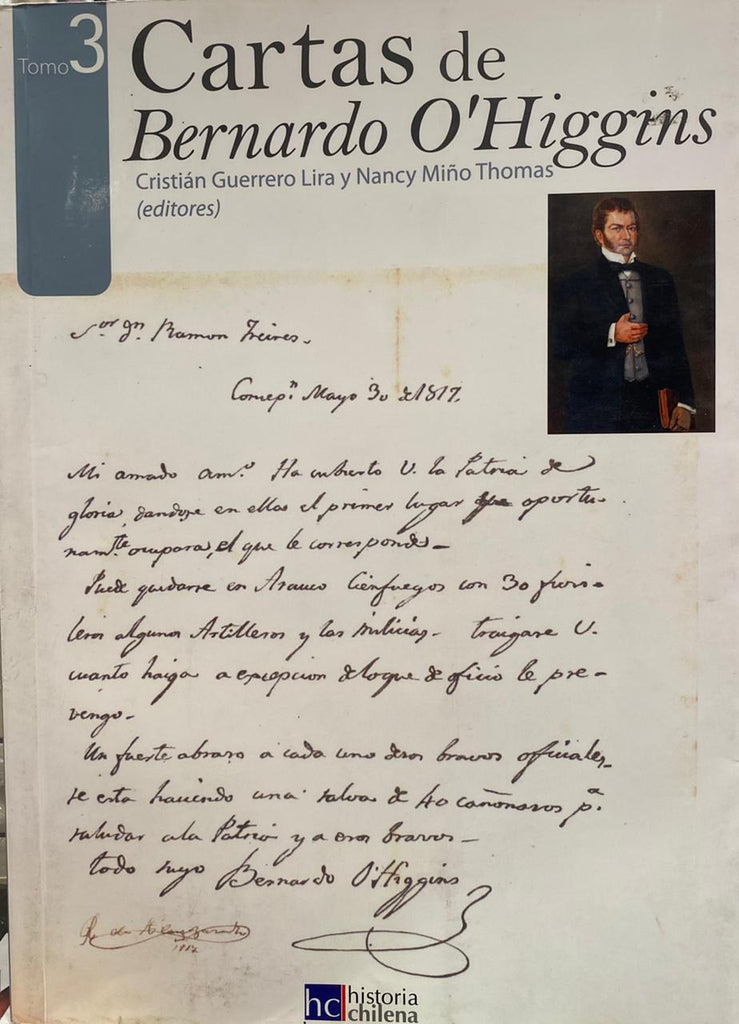 Tomo 3
Cartas de
Bernardo O'Higgins
Cristián Guerrero Lira y Nancy Miño Thomas
(editores)
S.or Dn. Ramon Freires.
Concep.n Mayo 30 de 1817.
Mi amado am.o Ha cubierto V. la Patria de
gloria, dandose en ellas el primer lugar que oportu-
nam.te ocupara, el que le corresponde.
Puede quedarse en Arauco Cienfuegos con 30 fusi-
leros algunos Artilleros y las milicias. traigase V.
cuanto haiga a excepcion de loque de oficio le pre-
vengo.
Un fuerte abraso a cada uno desos bravos oficiales,
se esta haciendo una salva de 40 cañonasos p.a
saludar ala Patria y a esos bravos
todo suyo Bernardo O'Higgins
1817
hc historia
chilena